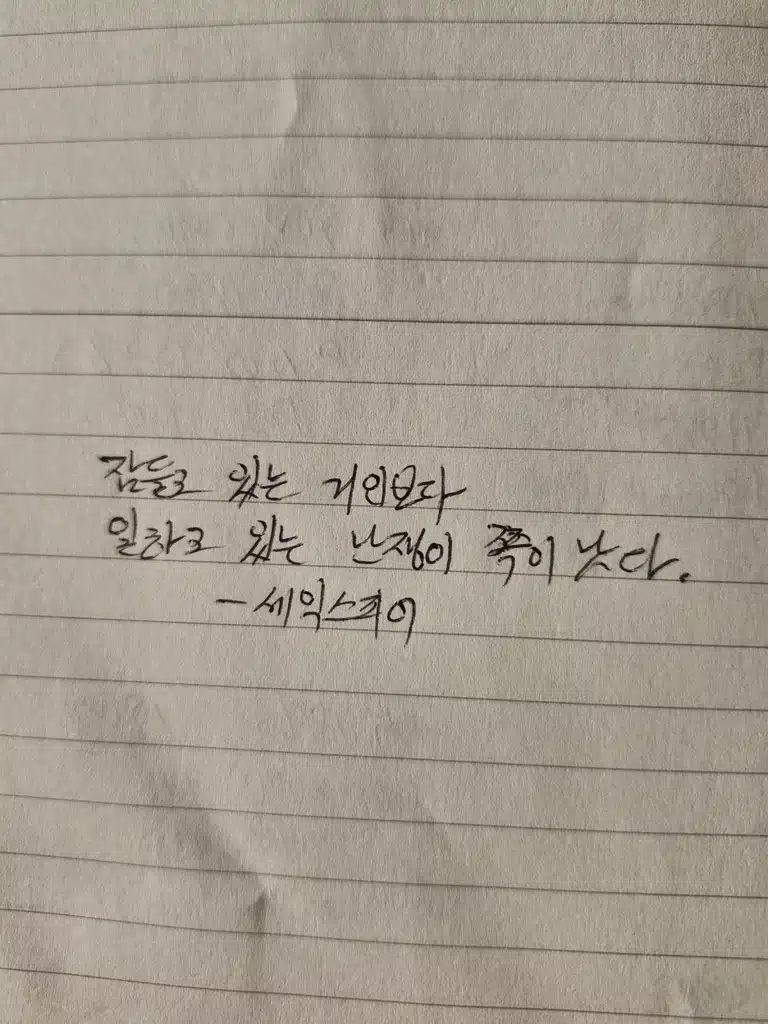 잠들고 있는 거인보다
일하고 있는 난쟁이 쪽이 낫다.
-세익스피어